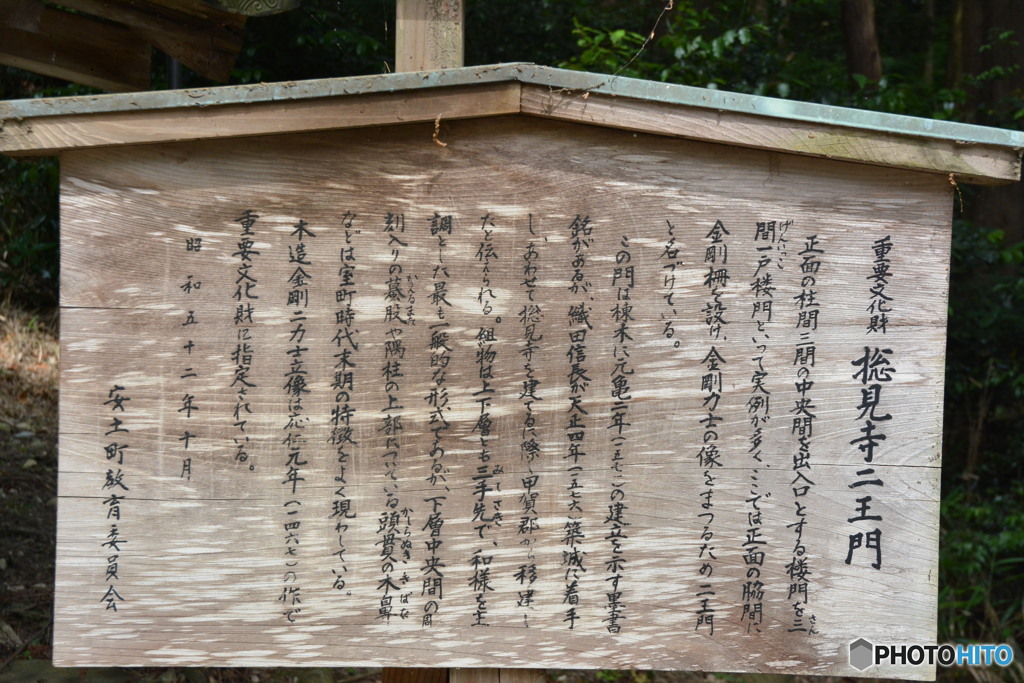 重要文化財 摠見寺二王門
正面の柱間三間の中央間を出入口とする楼門を三
さん
間一戸楼門といって実例が多く、ここでは正面の脇間に
げんいっこ
金剛柵を設け、金剛力士の像をまつるため二王門
と名づけている。
この門は棟木に元亀二年(一五七一)の建立を示す墨書
銘があるが、織田信長が天正四年(一五七六)築城に着手
し、あわせて摠見寺を建てるに際し甲賀郡から移建し
たと伝えられる。組物は上下層とも三手先で、和様を主
みてさき
調とした最も一般的な形式であるが、下層中央間の周
刻入りの蟇股や隅柱の上部についている頭貫の木鼻
かえるまた
かしらぬき きばな
などは室町時代末期の特徴をよく現わしている。
木造金剛二力士立像は応仁元年(一四六七)の作で
重要文化財に指定されている。
昭和五十二年十月
安土町教育委員会
PHOTOHITO